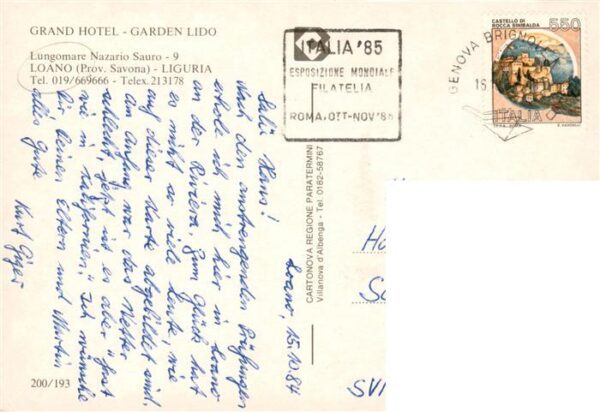 GRAND HOTEL - GARDEN LIDO
Lungomare Nazario Sauro - 9
LOANO (Prov. Savona) - LIGURIA
Tel. 019/669666 - Telex. 213178
ITALIA '85
ESPOSIZIONE MONDIALE
FILATELIA
ROMA, OTT-NOV '85
GENOVA BRIGNO
16
CASTELLO DI
ROCCA SINIBALDA
550
ITALIA
CARTONOVA REGIONE PARATERMINI
Villanova d'Albenga - Tel. 0182-58767
Loano, 15.10.84
Salü Hans!
Nach den anstrengenden Prüfungen
erhole ich mich hier in Loano
an der Riviera. Zum Glück hat
es nicht so viele Leute, wie
auf dieser Karte abgebildet sind.
Am Anfang war das Wetter
schlecht, jetzt ist es aber "fast
wie in Kalifornien." Ich wünsche
Dir, Deinen Eltern und Martin
alles Gute
Kurt Giger
Ha
Sc
SVI
200/193